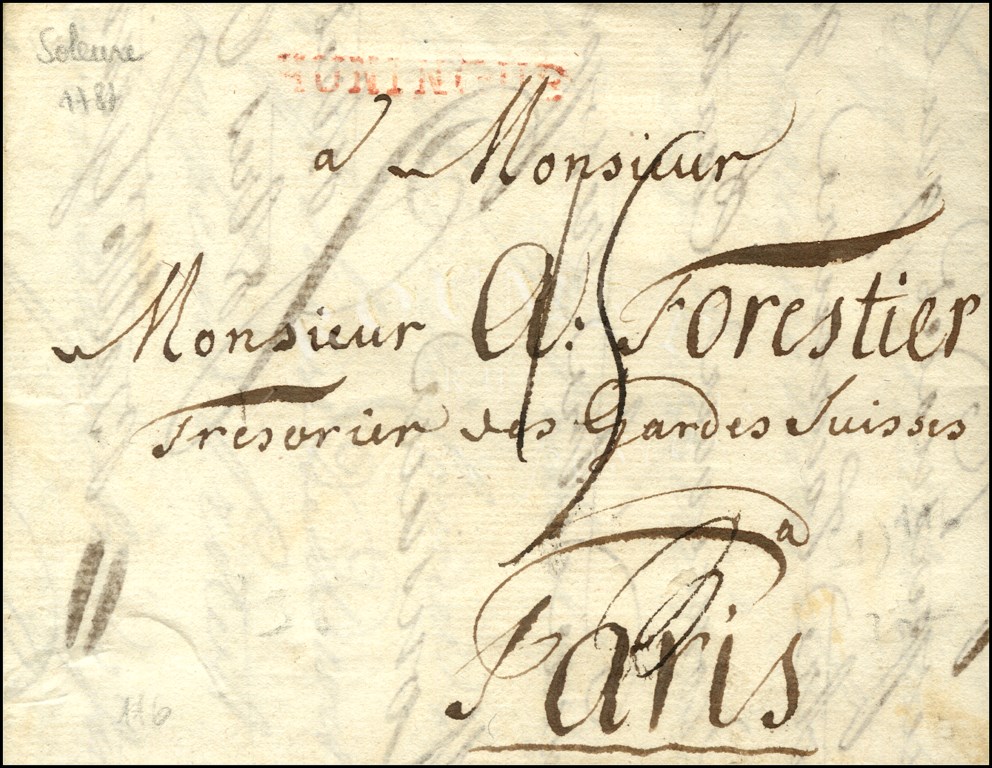 Soleure
HUNINGUE
à Monsieur
Monsieur A: Forestier
Tresorier des Gardes Suisses
à
Paris